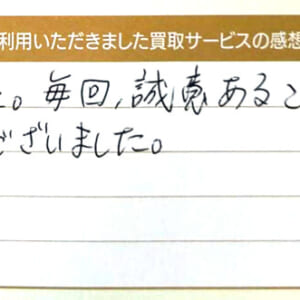 利用いただきました買取サービスの感想
た。毎回,誠意あるこ
ございました。